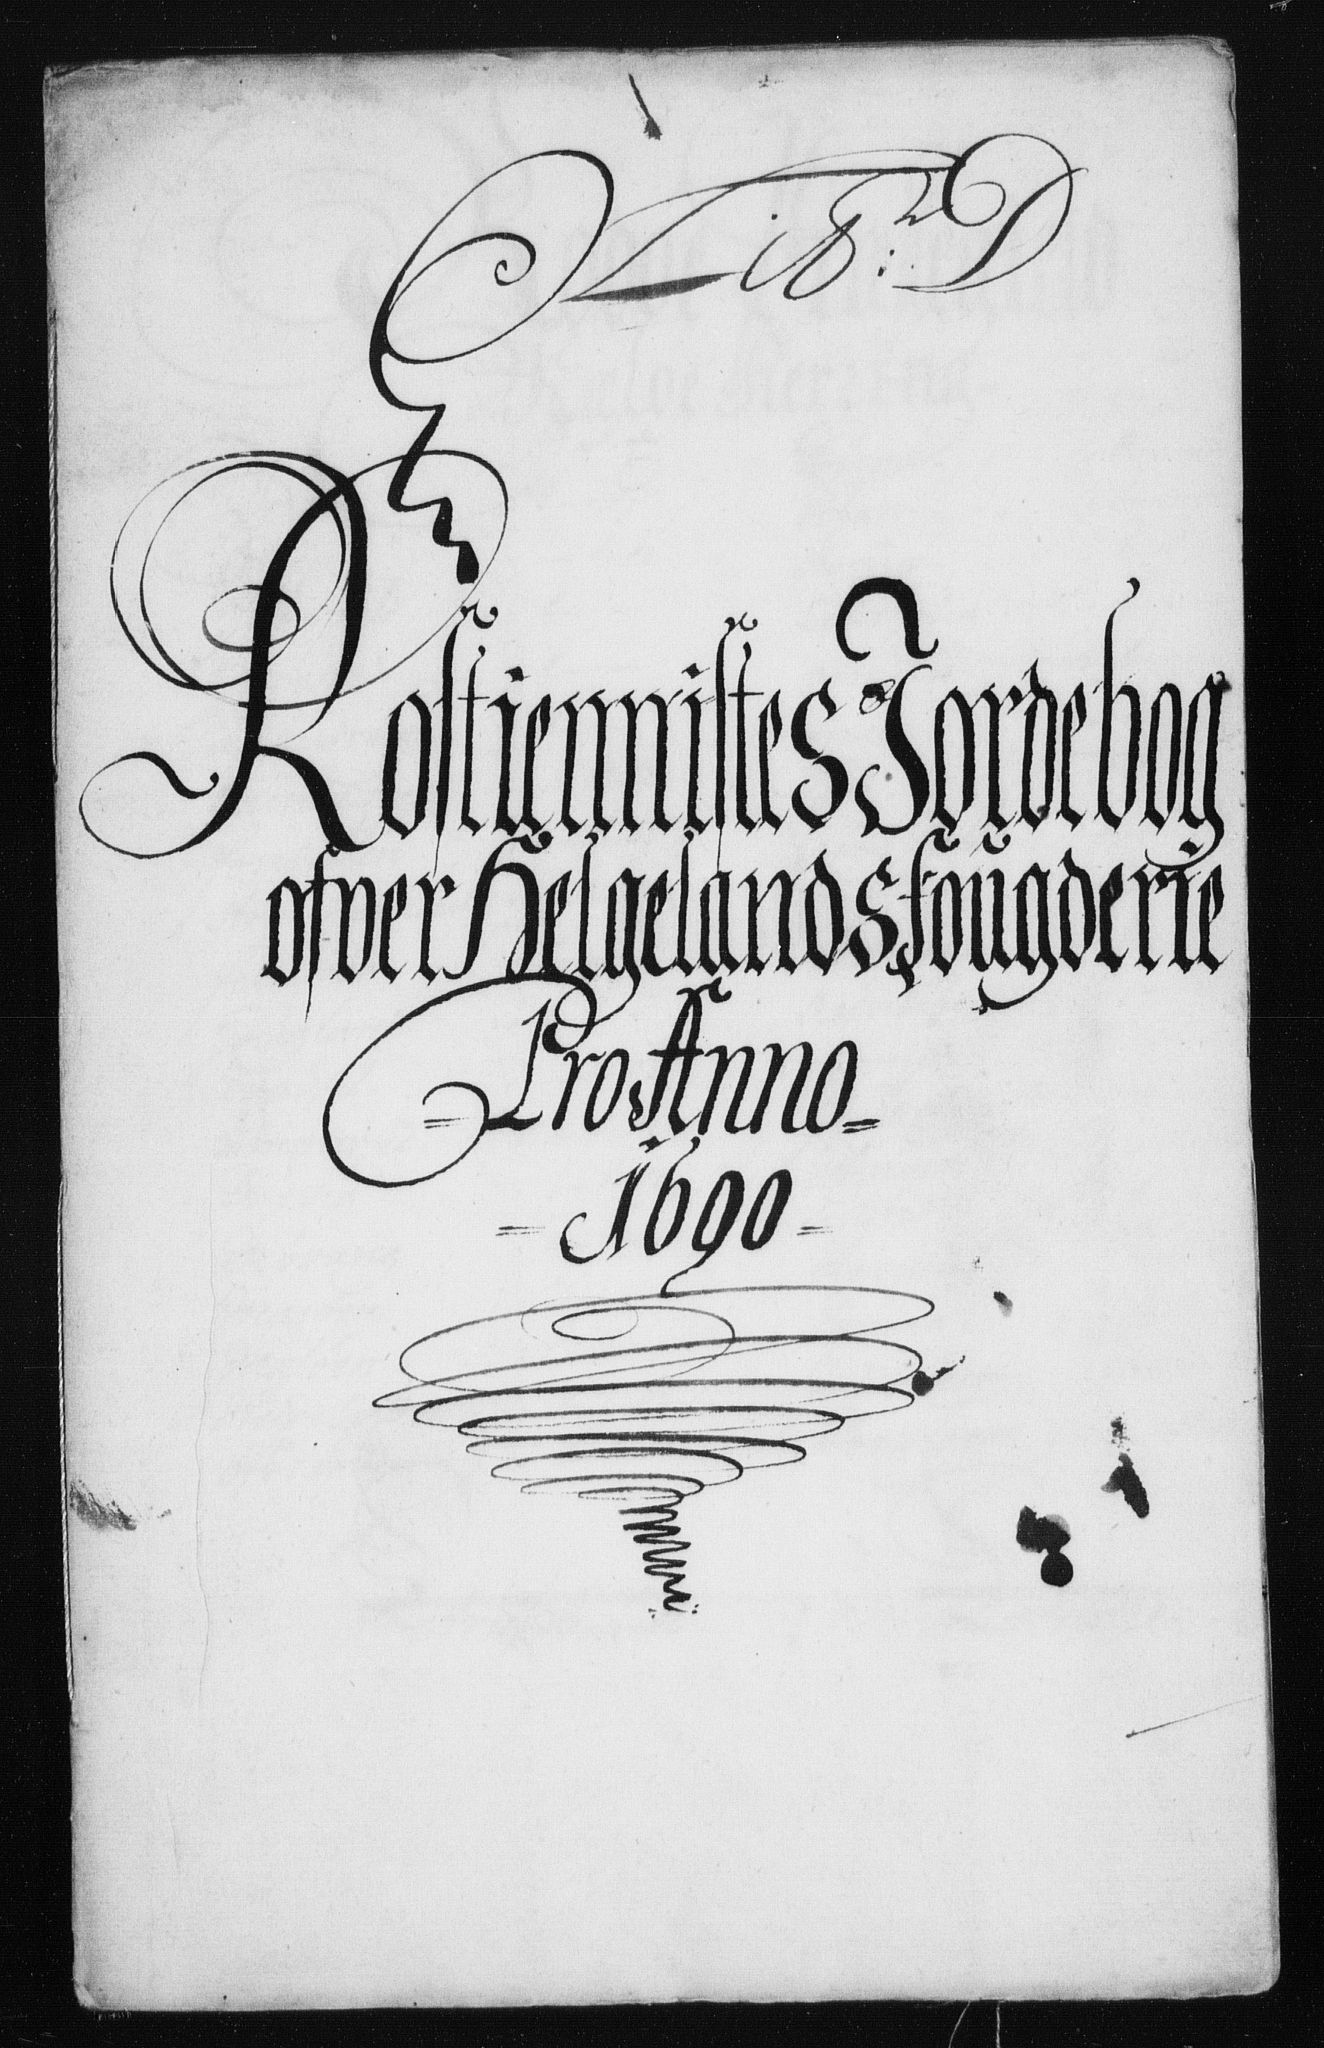 Litr: D
Rostiennistes Jordebog
ofver Helgelands fougderie
= Pro Anno =
= 1690 =